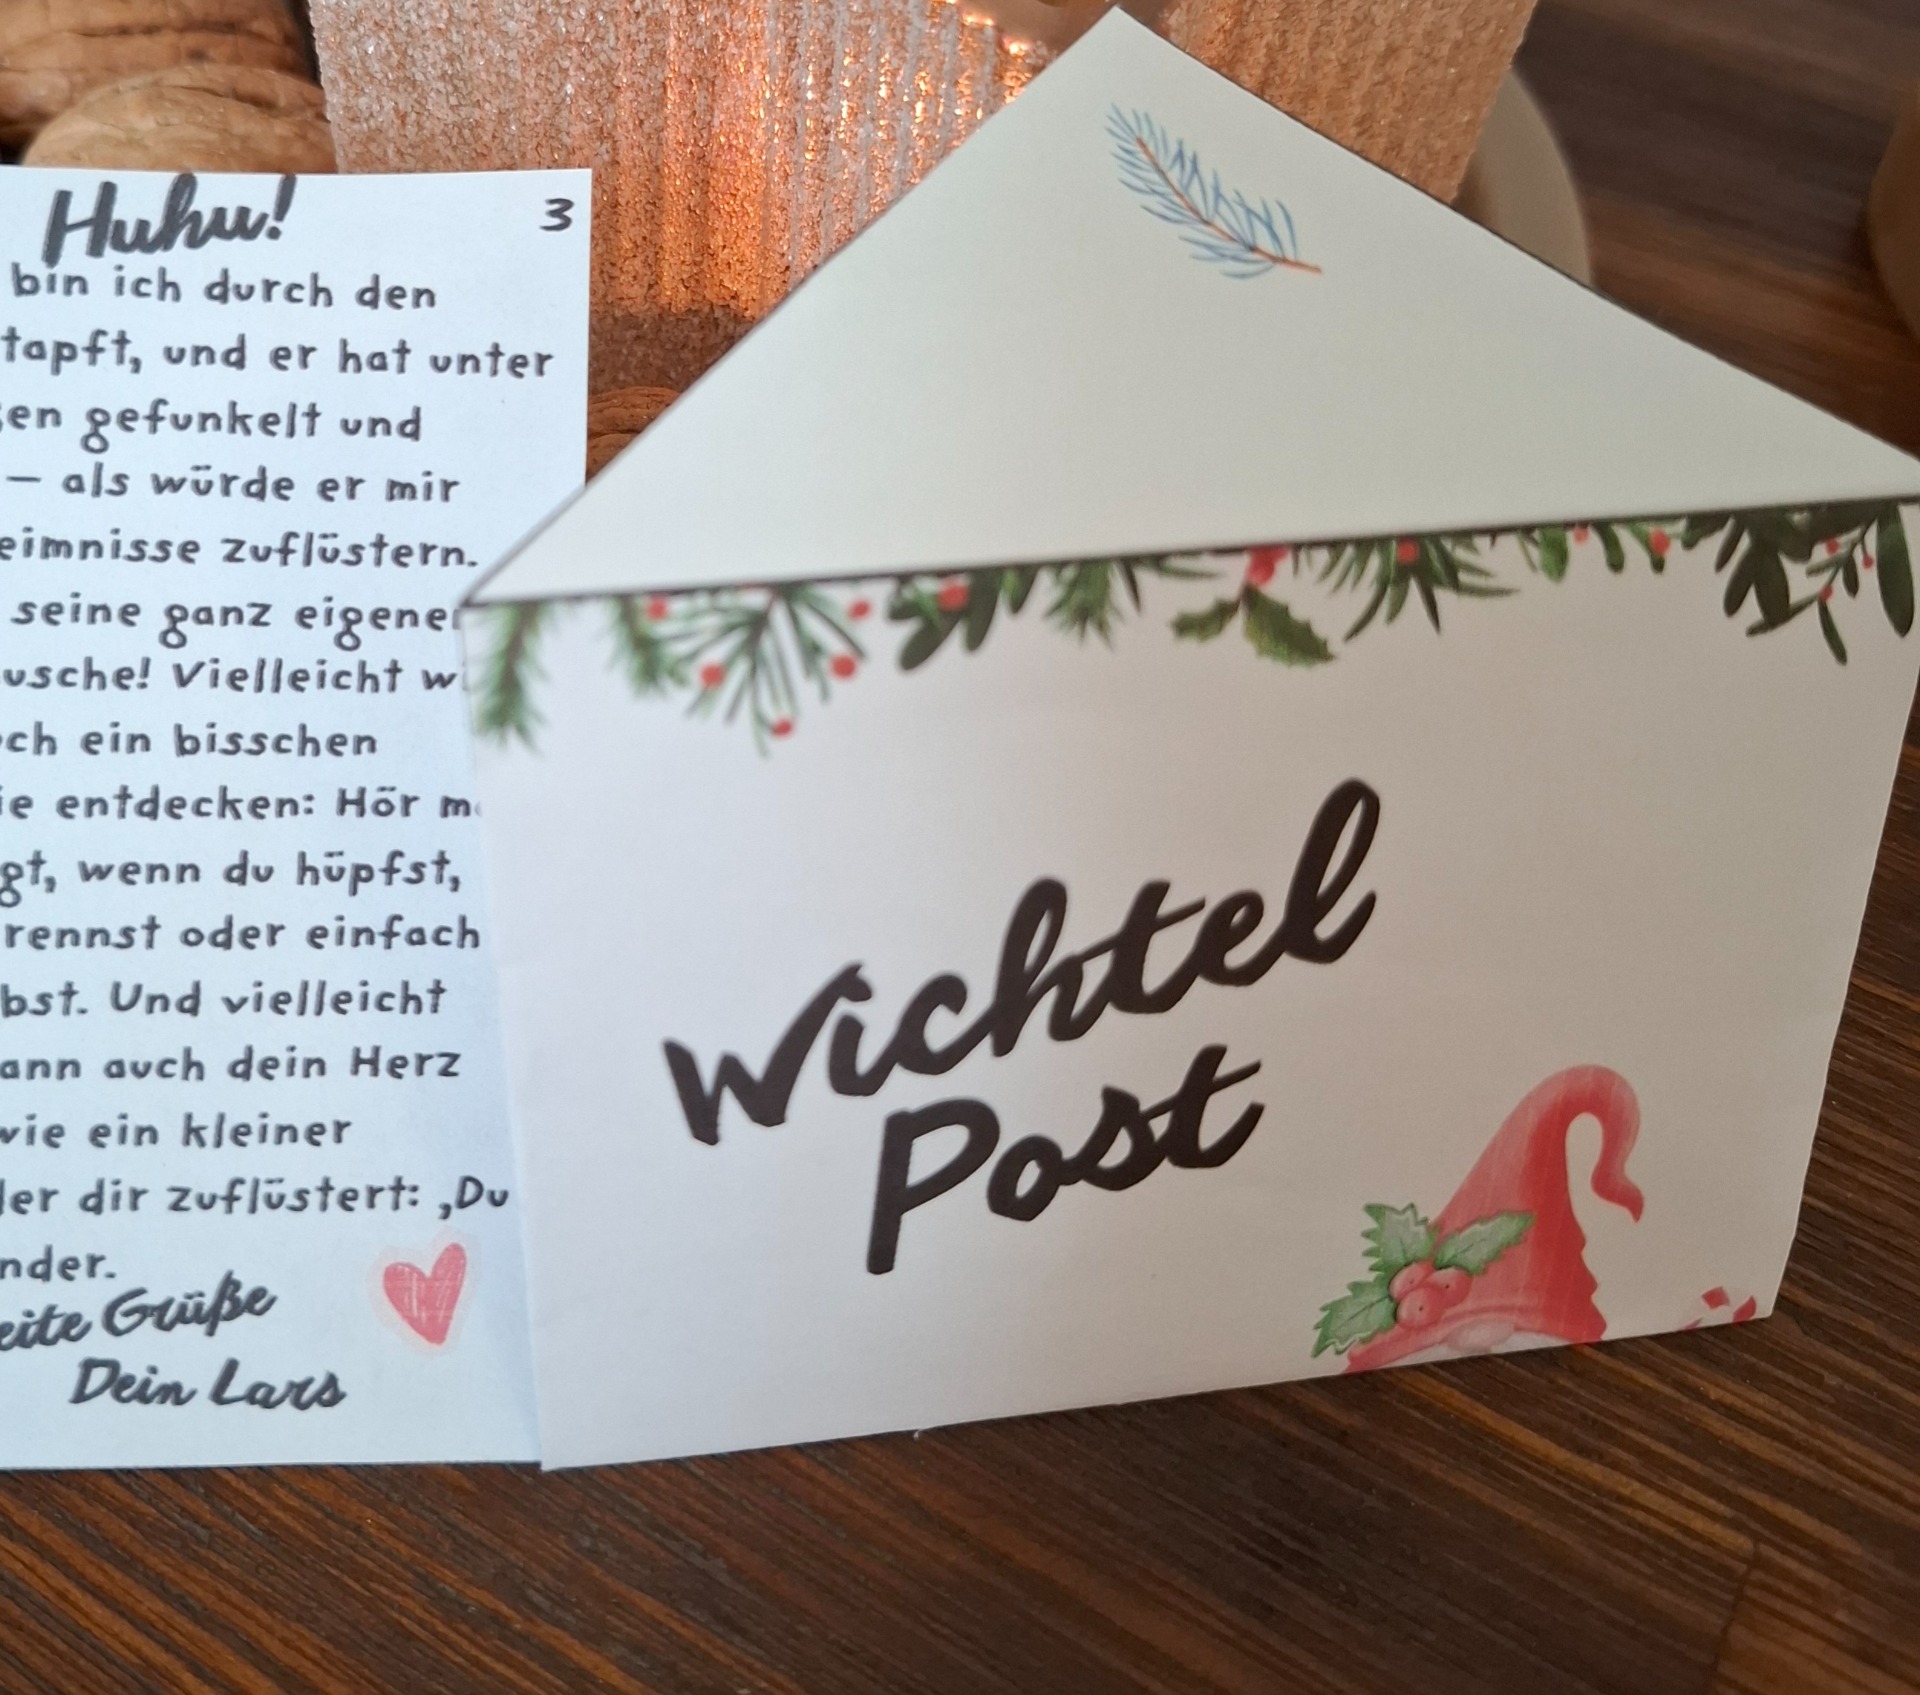 Huhu!
3
bin ich durch den
tapft, und er hat unter
en gefunkelt und
– als würde er mir
eimnisse zuflüstern.
seine ganz eigene
usche! Vielleicht w
ch ein bisschen
ie entdecken: Hör m
gt, wenn du hüpfst,
rennst oder einfach
bst. Und vielleicht
ann auch dein Herz
wie ein kleiner
er dir zuflüstert: ‚Du
nder.
eite Grüße
Dein Lars
Wichtel
Post